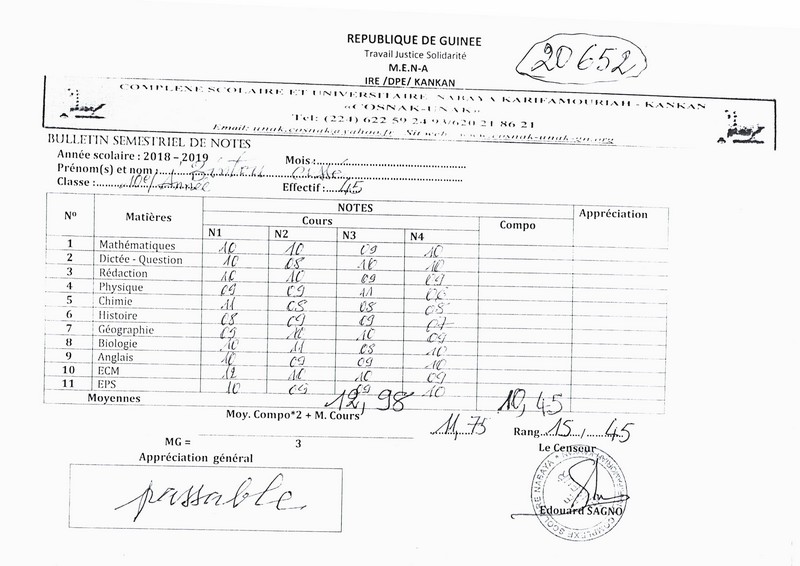 REPUBLIQUE DE GUINEE
Travail Justice Solidarité
M.E.N-A
IRE /DPE/ KANKAN
20652
COMPLEXE SCOLAIRE ET UNIVERSITAIRE NABAYA KARIFAMOURIAH - KANKAN
«COSNAK-UNAK»
Tel: (224) 622 59 24 93/620 21 86 21
Email: unak_cosnak@yahoo.fr Sit web www.cosnak-unak-gn.org
BULLETIN SEMESTRIEL DE NOTES
Année scolaire : 2018 – 2019 Mois :
Prénom(s) et nom : Bintou Cissé
Classe : 10e/Année Effectif : 45
Nº Matières NOTES Appréciation
Cours Compo
N1 N2 N3 N4
1 Mathématiques 10 10 09 10
2 Dictée - Question 10 08 10 10
3 Rédaction 10 10 09 09
4 Physique 09 09 11 08
5 Chimie 11 08 08 08
6 Histoire 08 09 09 07
7 Géographie 09 10 10 09
8 Biologie 10 11 08 10
9 Anglais 10 09 09 10
10 ECM 12 10 10 09
11 EPS 10 09 09 10
Moyennes 12,98 10,45
Moy. Compo*2 + M. Cours
MG = 3 11,75 Rang 15 / 45
Appréciation général Le Censeur
passable
Edouard SAGNO